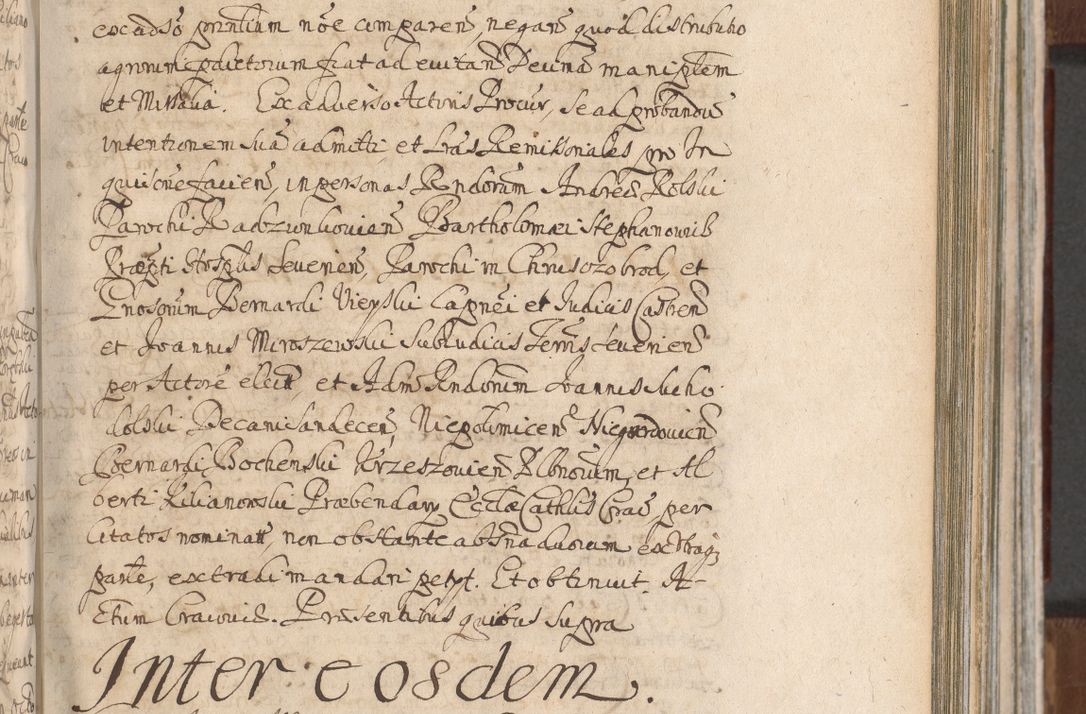 excadso prntium nõe comparens, negans quod distributio
agrorum pdictorum fiat ad evitan Decimã manipłem
et Missalia. Ex adverso Actoris Procur, se ad probandũ
intentionem suã admitti et Lras Remissoriales pro In
quisõne faciend, in personas Rndorum Andreæ Rolski
Parochi Radzionkoviens Bartholomæi Stephanowic
Præpti Hosplis Severiens, Parochi in Chrusczobrod, et
Gnosorum Bernardi Vieyski Capnei et Judicis Castren
et Joannis Miroszewski Subiudicis Terris Severiens
per Actorẽ elect, et Adm Rndorum Joannis Sucho
dolski Decani Sandecens, Niepolimicens Niegardoviens
Bernardi Bochenski Krzeszoviens Plbnorum, et Al
berti Kilianowski Præbendarij Ecclæ Cathlis Crac per
Citatos nominatt, non obstante absna duorum ex utraq
parte, extradi mandari petyt. Et obtinuit. A-
ctum Cracoviæ. Præsentibus quibus supra
Inter eosdem.